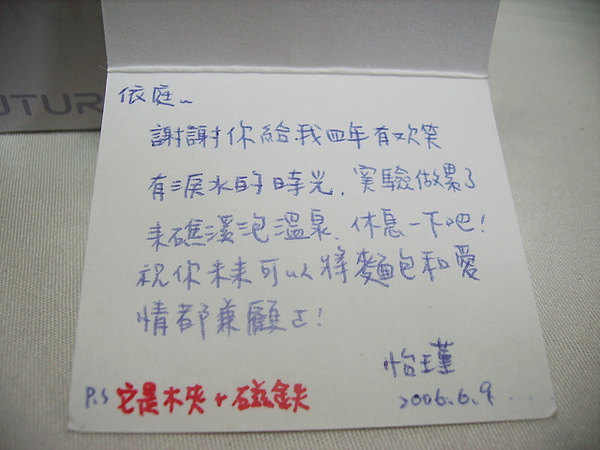 UTUR
依庭~
謝謝你給我四年有歡笑
有淚水的時光, 實驗做累了
來礁溪泡溫泉、休息一下吧!
祝你未來可以將麵包和愛
情都兼顧ㄛ!
怡瑾
2006.6.9
P.S 它是木夾+磁鐵